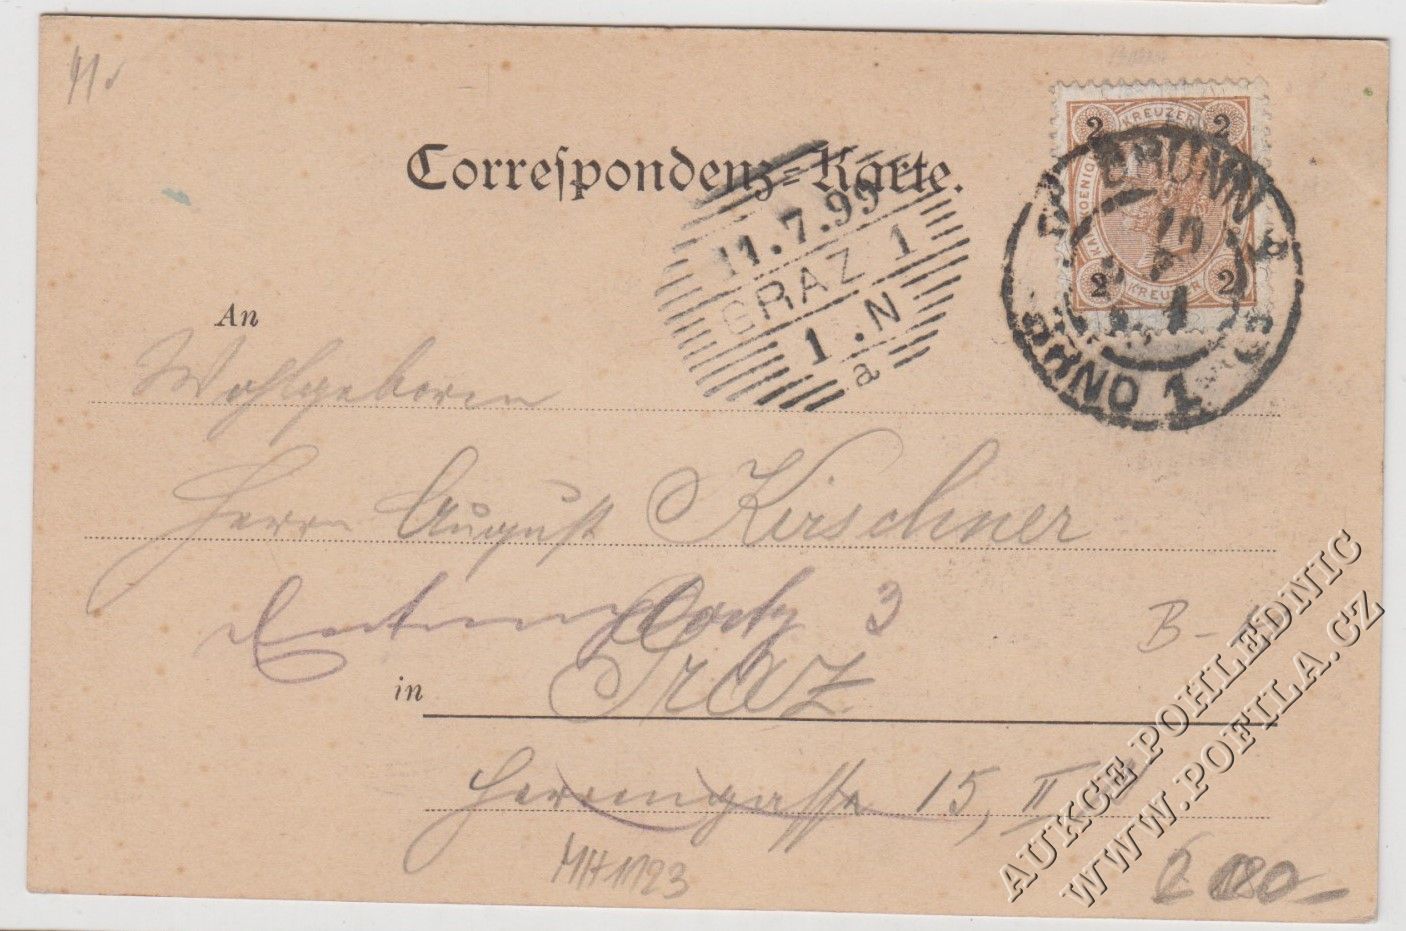 Correspondenz-Karte.
2 KREUZER 2
2 KREUZER 2
BRÜNN
BRNO 1
11.7.99
GRAZ 1
1.N
a
An
Wohlgeboren
Herrn August Kirschner
3
in Graz
Herrengasse 15, II
B-
MH1123
180-
AUKCE POHLEDNIC
WWW.POFILA.CZ